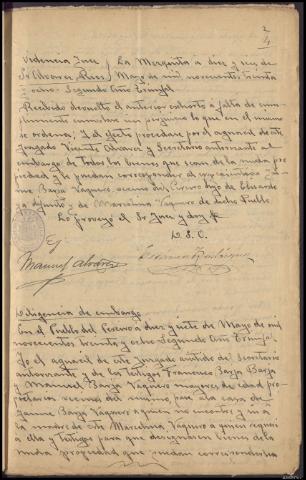 2
4
Providencia Juez La Merguita a diez y seis de
Sr Alvarez Ruiz Mayo de mil novecientos treinta
y ocho. Segundo Año Triunfal
Recibido devuelto el anterior exhorto a falta de cum-
plimiento cumplase con urgencia lo que en el mismo
se ordena, y al efecto procedase por el aguacil de este
Juzgado Vicente Alvarez y Secretario autorizante al
embargo de todos los bienes que sean de la nuda pro-
piedad y le puedan corresponder al
Jaime Barja Vaquero vecino del Pereiro hijo de Eduardo
ya difunto y de Marcelina Vaquero de dicho Pueblo
Lo proveyó el Sr Juez y doy fe
Manuel Alvarez
Diligencia de embargo
En el Pueblo del Pereiro a diez y siete de Mayo de mil
novecientos treinta y ocho Segundo Año Triunfal
Yo el aguacil de este Juzgado asistido de Secretario
autorizante y de los testigos Francisco Barja Barja
y Manuel Barja Vaquero mayores de edad pro-
pietarios vecinos del mismo, pasé a la casa de
Jaime Barja Vaquero a quien no encontre y si a
la madre de este Marcelina Vaquero a quien requiri
a ella y testigos para que designasen bienes de la
nuda propiedad que puedan corresponderle a